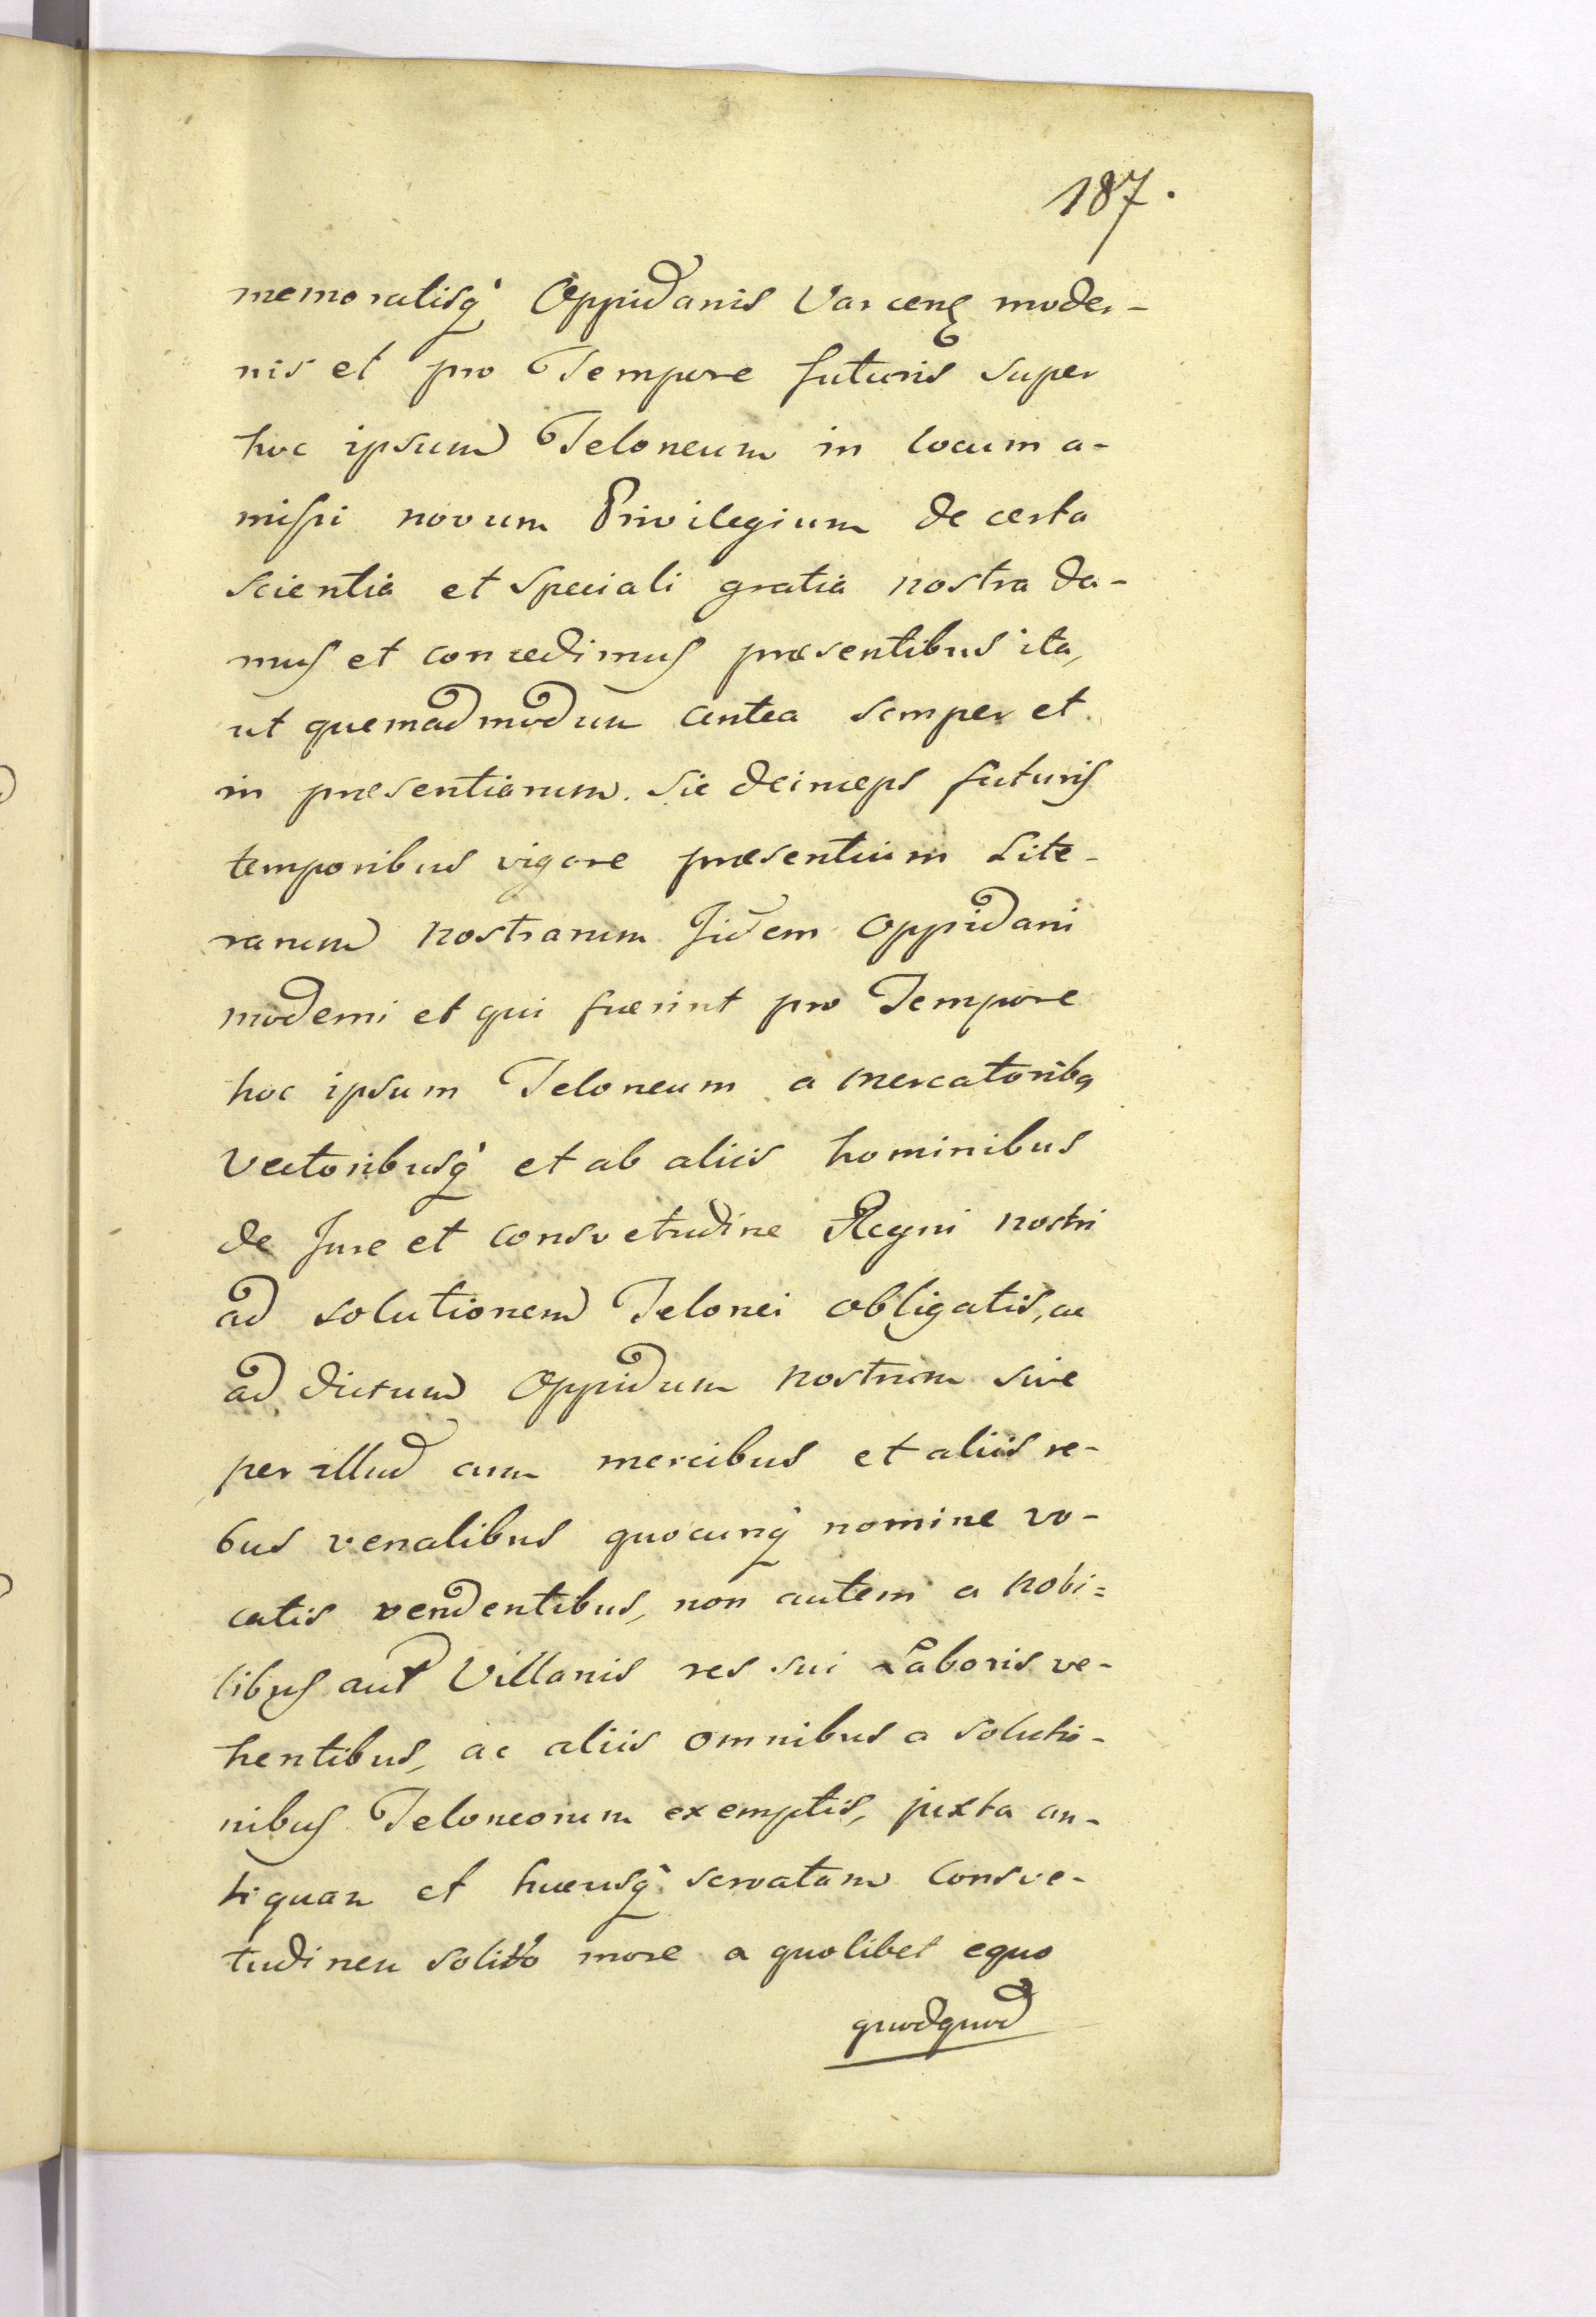 187.
memoratisq' Oppidanis Varcenę moder-
nis et pro Tempore futuris super
hoc ipsum Teloneum in locum a-
missi novum Privilegium de certa
scientia et speciali gratia nostra da-
mus et concedimus præsentibus ita,
ut quemadmodum antea semper et
in præsentiarum. sic deinceps futuris
temporibus vigore præsentium Lite-
rarum nostrarum Iidem Oppidani
moderni et qui fuerint pro Tempore
hoc ipsum Teloneum a mercatoribq
Vectoribusq' et ab aliis hominibus
de Jure et consvetudine Regni nostri
ad solutionem Telonei obligatis, ac
ad dictum Oppidum nostrum sive
per illud cum mercibus et aliis re-
bus venalibus quocunq' nomine vo-
catis vendentibus, non autem a nobi=
libus aut Villanis res sui Laboris ve-
hentibus, ac aliis omnibus a solutio-
nibus Teloneorum exemptis, juxta an-
tiquam et hucusq' servatam Consve-
tudinem solito more a quolibet equo
quodquod